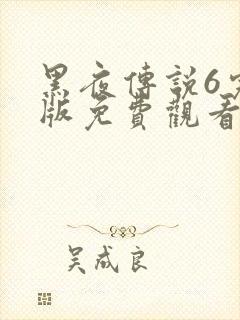 黑夜傳說6
版免費觀看
吴成良